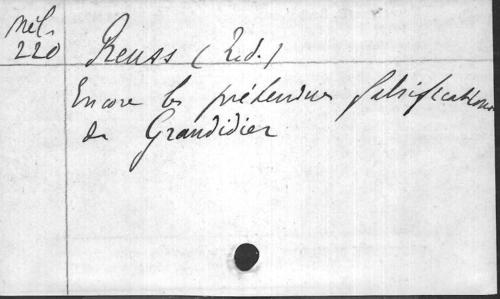 Mél.
220
Reuss (Rod.)
Encore les prétendues falsifications
de Grandidier